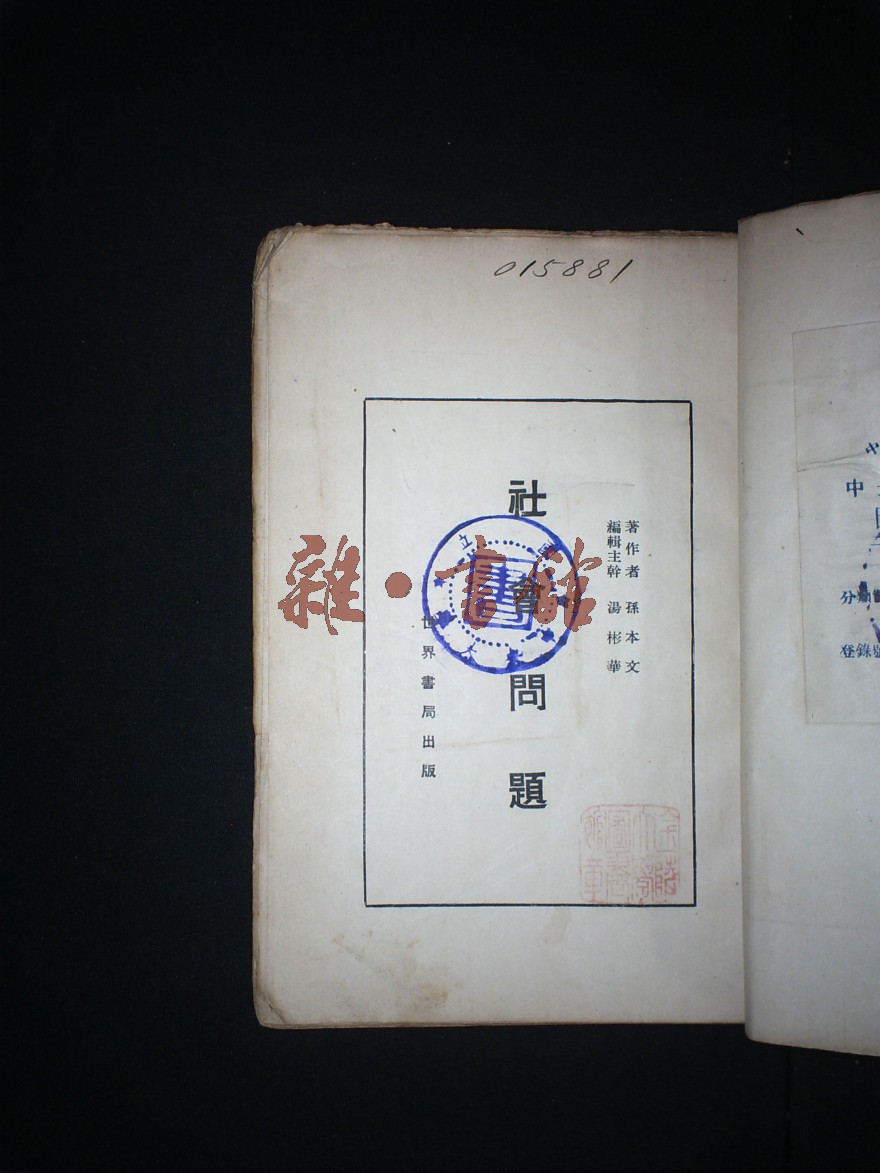 015881
著作者 孫本文
編輯主幹 湯彬華
社會問題
世界書局出版
雜·書館
中
分類
登錄號